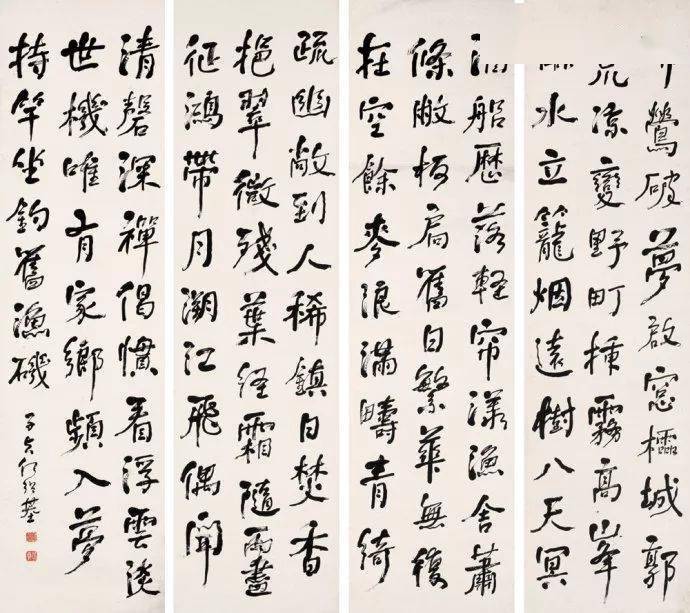 鶯破夢啟窗櫺城郭
荒涼變野町霧高峰
水立籠烟遠樹入天冥
酒船歷落輕帘漾漁舍蕭
條敝板扃舊日繁華無復
在空餘麥浪滿疇青綺
疏幽敞到人稀鎮日焚香
挹翠微殘葉經霜隨雨盡
征鴻帶月溯江飛偶聞
清磬深禪偈慣看浮雲淡
世機唯有家鄉頻入夢
持竿坐釣舊漁磯
子貞何紹基